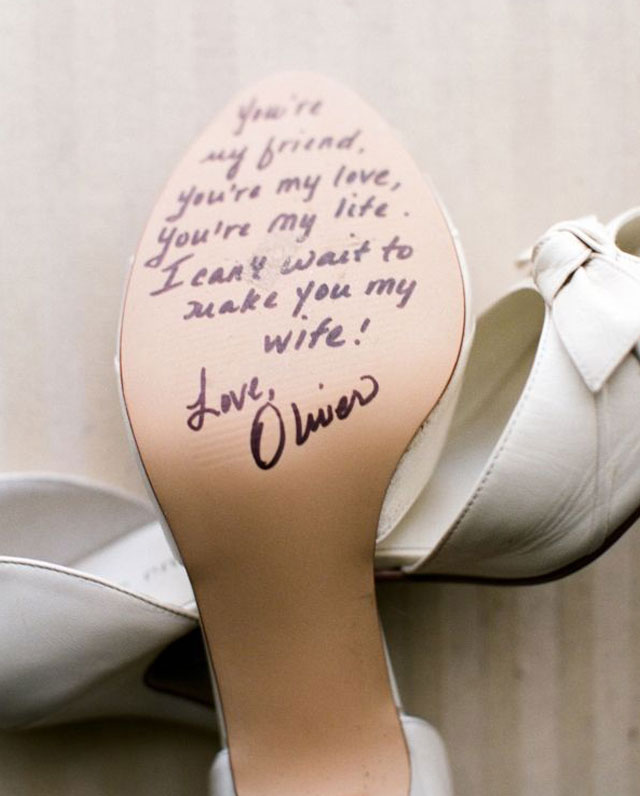 You're
my friend.
you're my love,
you're my life.
I can't wait to
make you my
wife!
Love,
Oliver